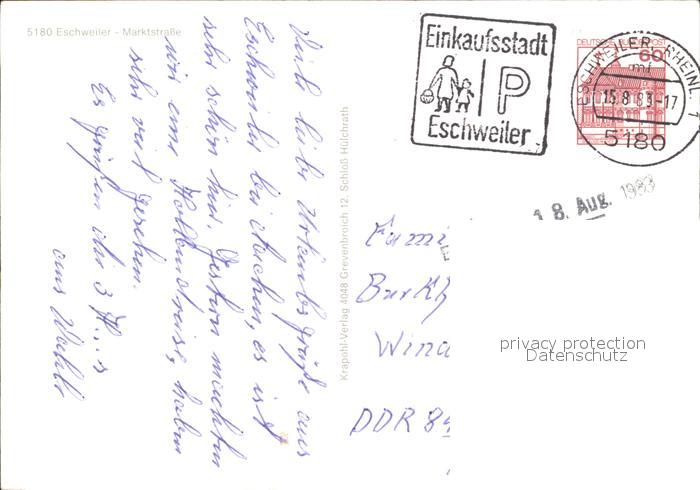 5180 Eschweiler - Marktstraße
Viele liebe Urlaubsgrüße aus
Eschweiler bei Aachen, es ist
sehr schön hier. Gestern machten
wir eine Holland reise, haben
sehr viel gesehen.
Es grüßen die 3
aus
Krapohl-Verlag 4048 Grevenbroich 12, Schloß Hülchrath
Einkaufsstadt
P
Eschweiler
DEUTSCHE BUNDESPOST
60
ESCHWEILER, RHEINL 1
mf
15.8.83-17
5180
18. Aug. 1983
Fami
Burkh
Wina
DDR 84
privacy protection
Datenschutz